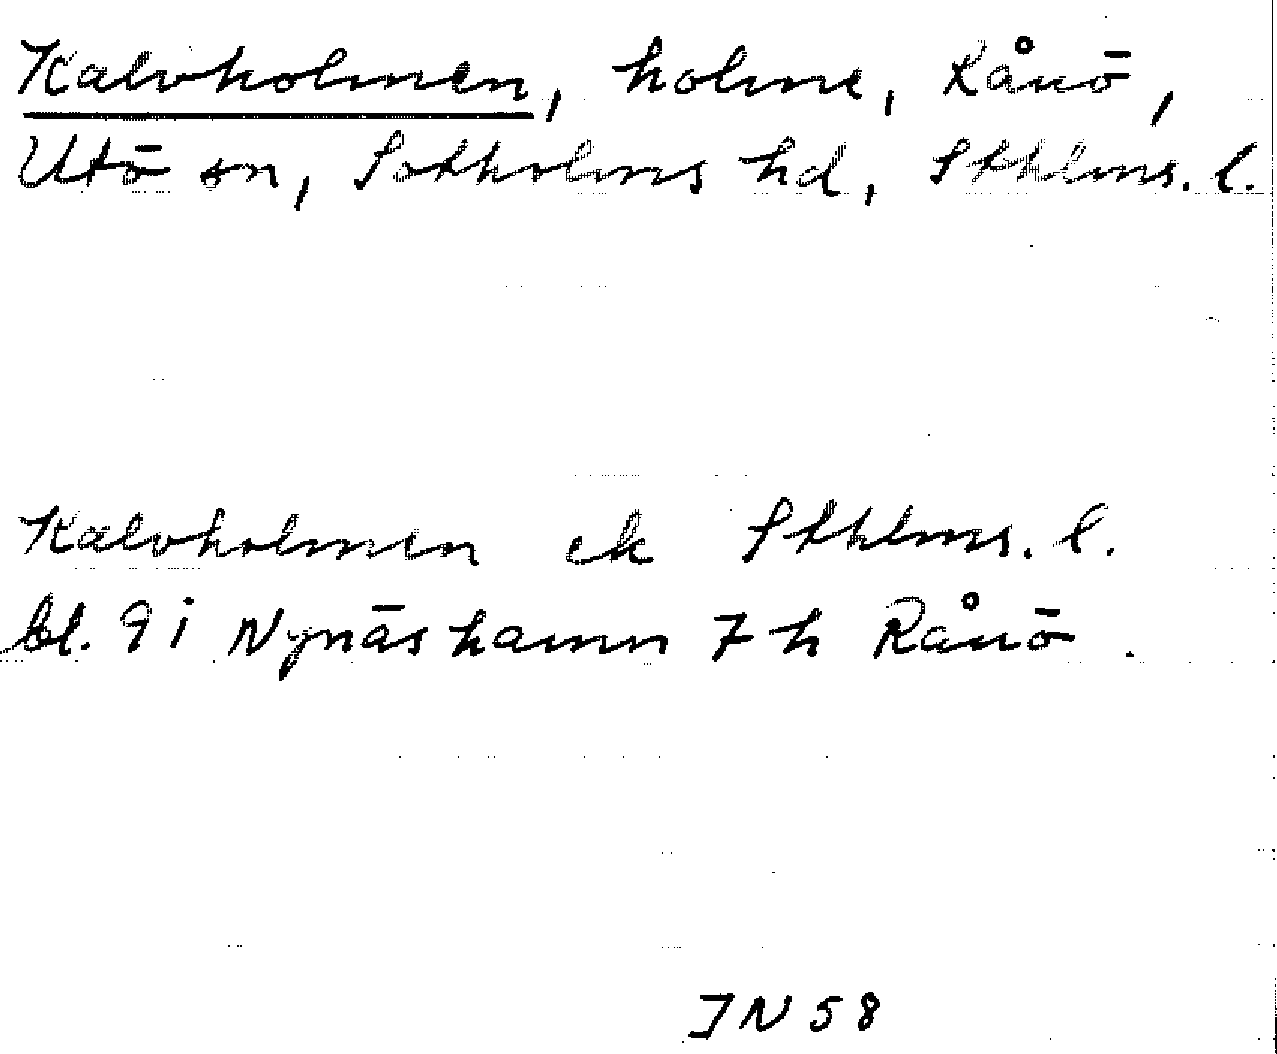 Kalvholmen, holme, Rånö,
Utö sn, Sotholms hd, Sthlms. l.
Kalvholmen ek Sthlms. l.
bl. 9 i Nynäshamn 7 h Rånö.
IN 58